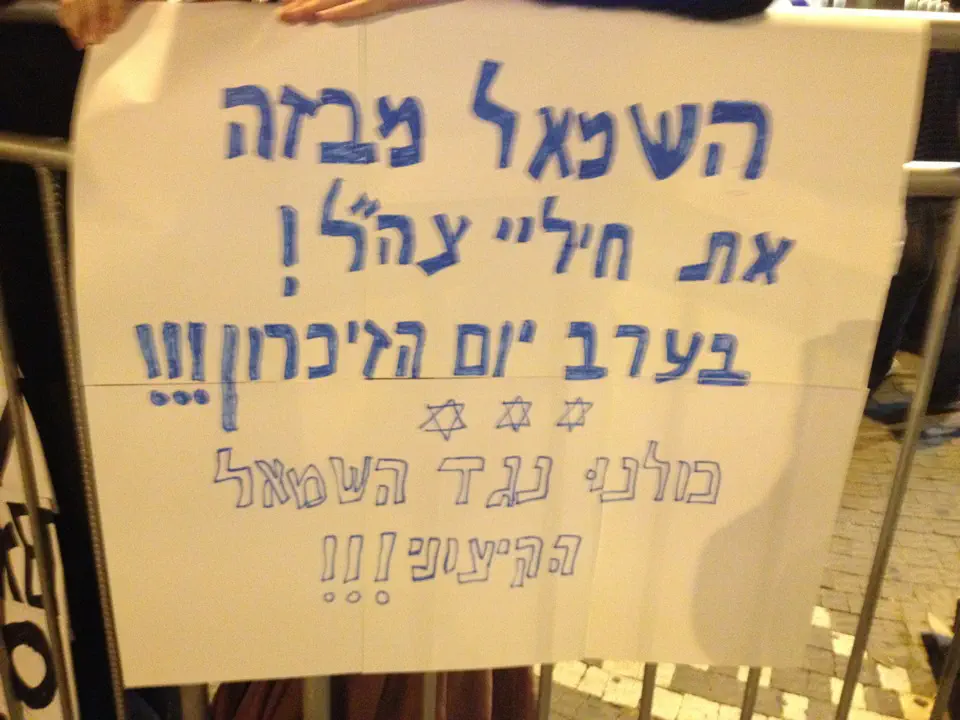 השמאל מבזה
את חיליי צה"ל!
בערב יום הזיכרון!!!
כולנו נגד השמאל
הקיצוני!!!